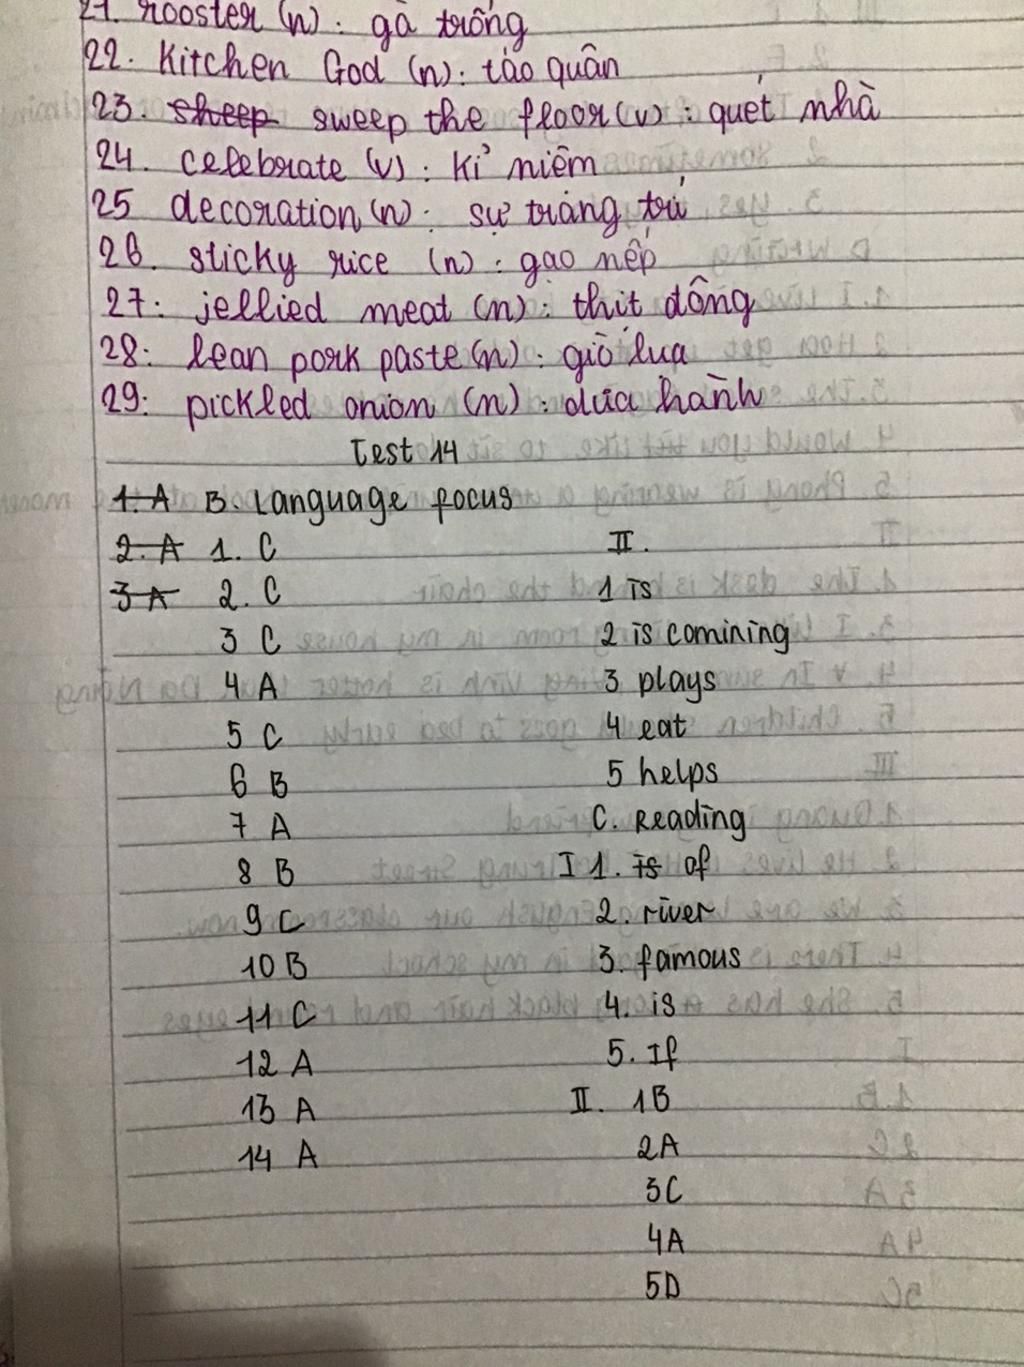 21. rooster (n): gà trống
22. Kitchen God (n): táo quân
23. sheep sweep the floor (v): quét nhà
24. celebrate (v): kỉ niệm
25 decoration (n): sự trang trí
26. sticky rice (n): gạo nếp
27: jellied meat (n): thịt đông
28: lean pork paste (n): giò lụa
29: pickled onion (n): dưa hành
Test 14
1. A B. Language focus
2. A 1. C
3 A 2. C
3 C
4 A
5 C
6 B
7 A
8 B
9 C
10 B
11 C
12 A
13 A
14 A
II.
1 is
2 is comining
3 plays
4 eat
5 helps
C. Reading
I 1. is of
2. river
3. famous
4. is
5. If
II. 1B
2A
3C
4A
5D